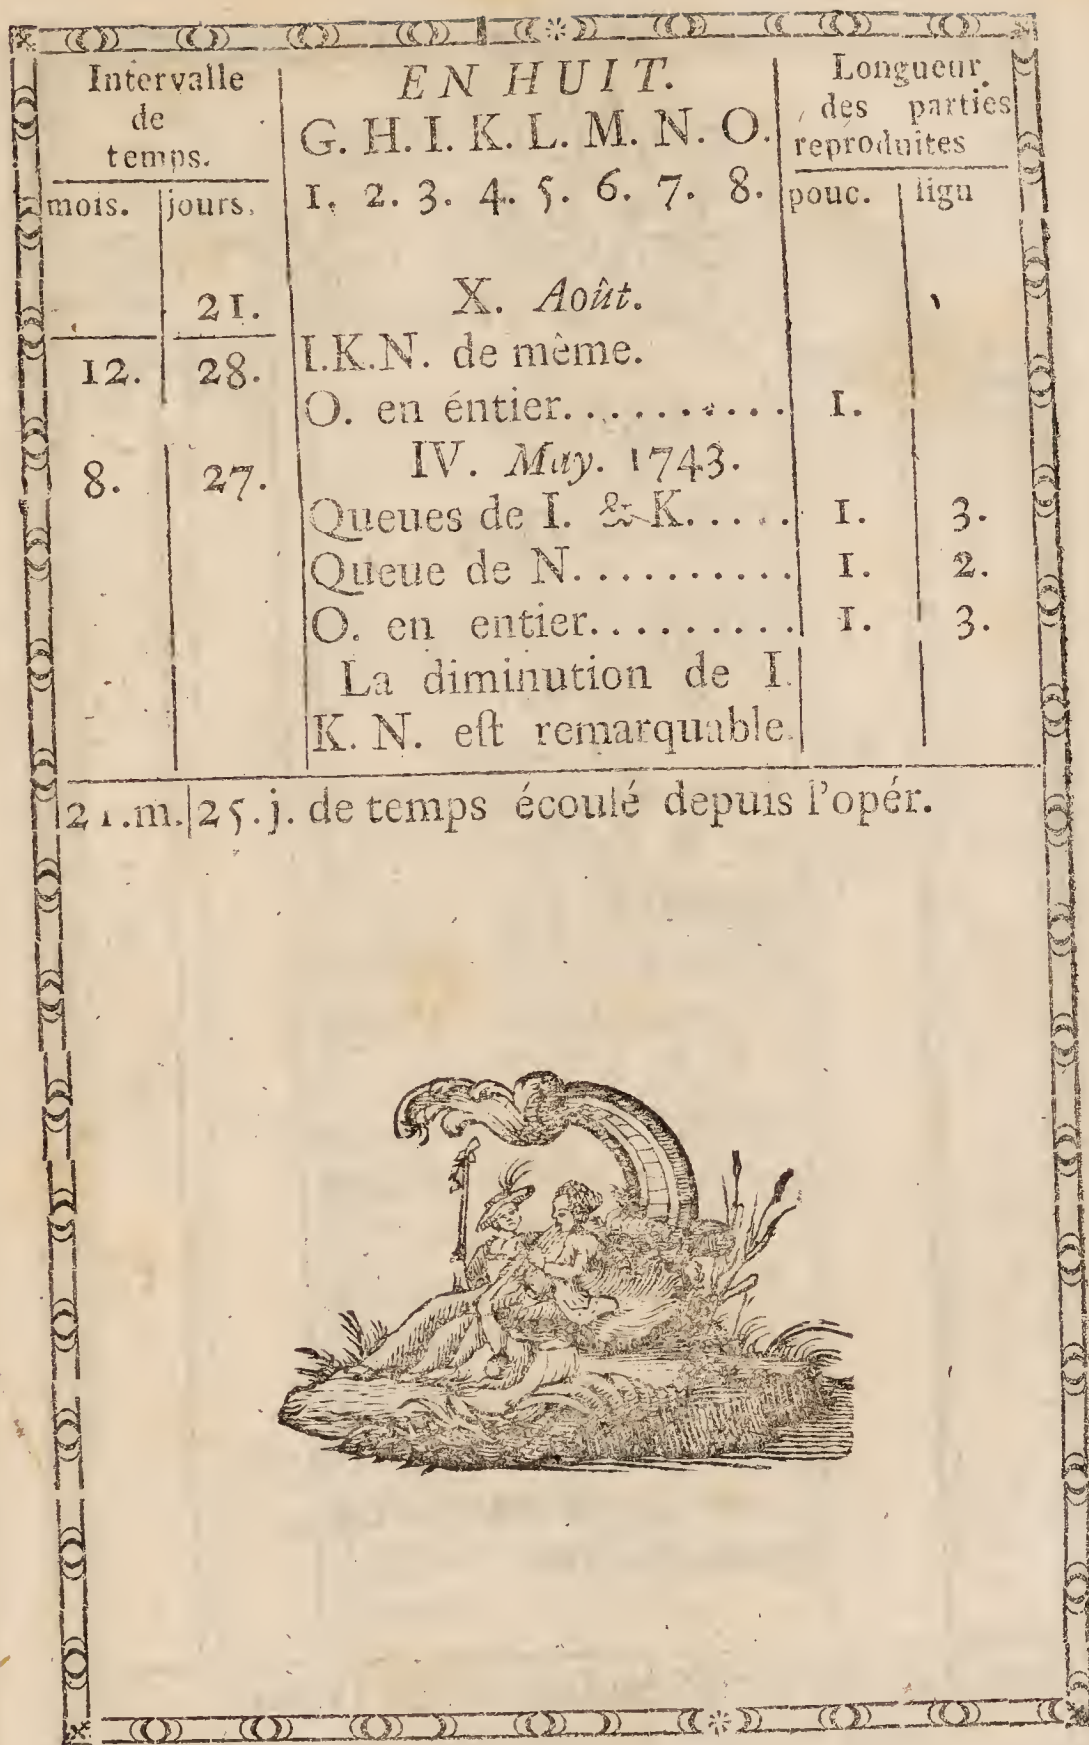 Intervalle
de
temps.
mois. jours.
EN HUIT.
G. H. I. K. L. M. N. O.
1. 2. 3. 4. 5. 6. 7. 8.
Longueur
des parties
reproduites
pouc. lign
21. X. Août.
12. 28. I.K.N. de même.
O. en éntier.......... 1.
8. 27. IV. May. 1743.
Queues de I. & K..... 1. 3.
Queue de N.......... 1. 2.
O. en entier......... 1. 3.
La diminution de I.
K. N. eſt remarquable.
21.m. 25.j. de temps écoulé depuis l'opér.